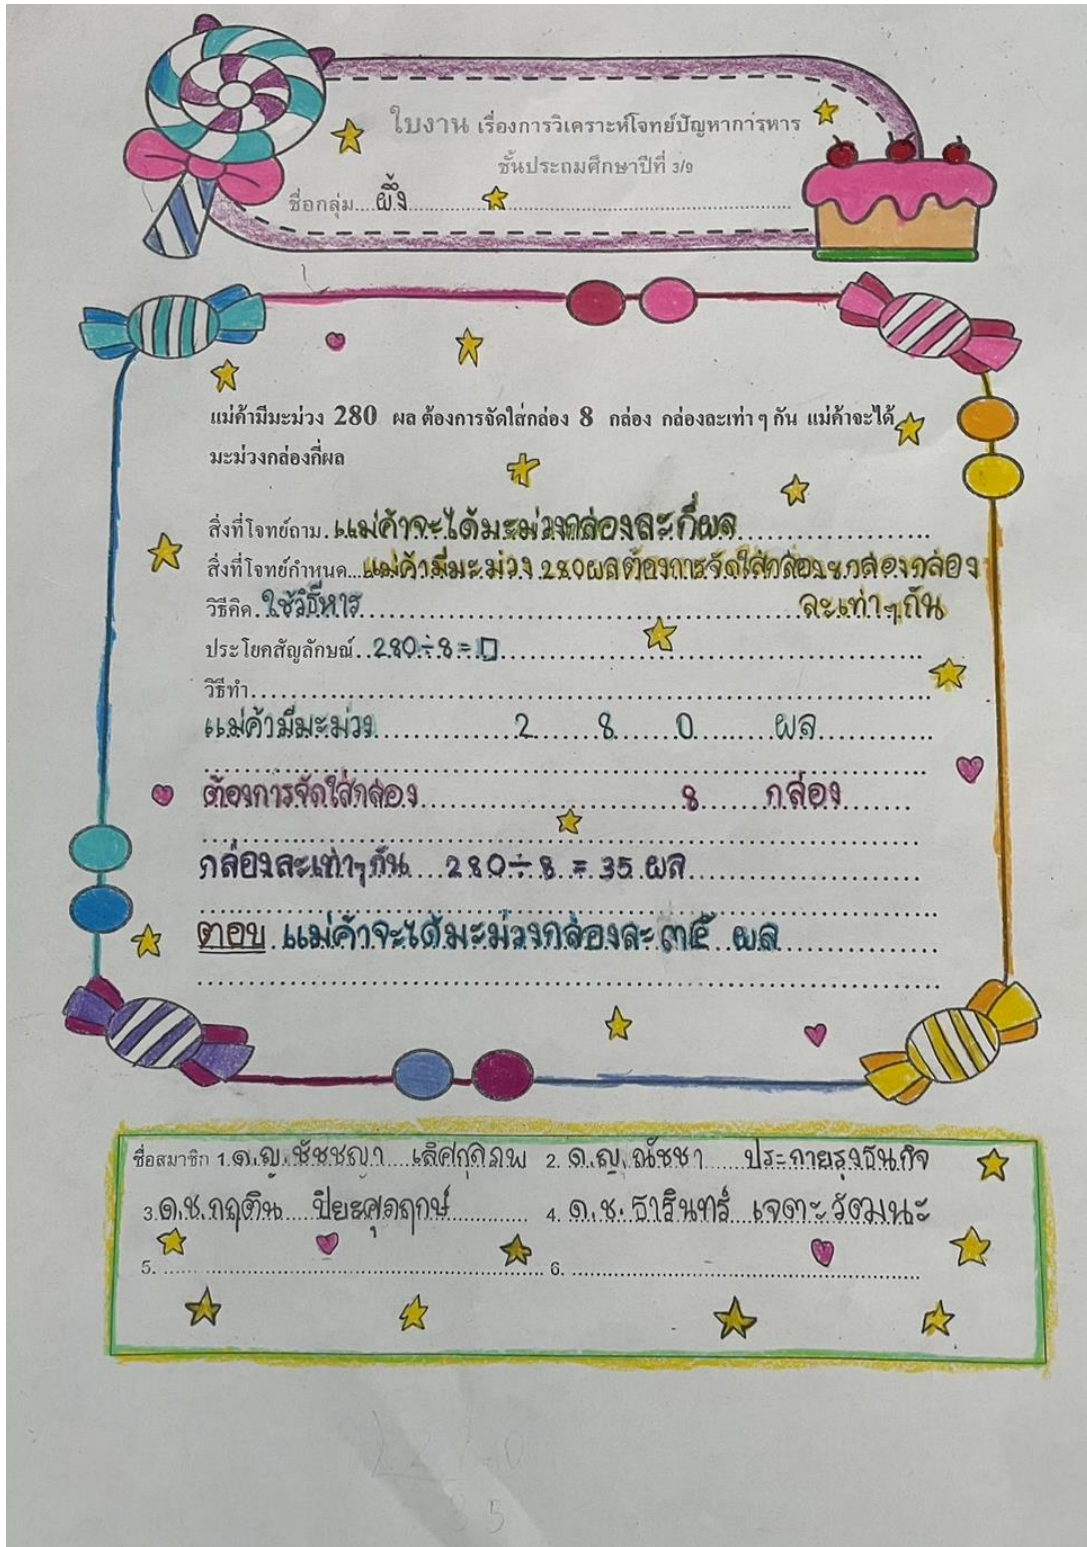 ใบงาน เรื่องการวิเคราะห์โจทย์ปัญหาการหาร
ชั้นประถมศึกษาปีที่ 3/9
ชื่อกลุ่ม....ผึ้ง
แม่ค้ามีมะม่วง 280 ผล ต้องการจัดใส่กล่อง 8 กล่อง กล่องละเท่า ๆ กัน แม่ค้าจะได้
มะม่วงกล่องกี่ผล
สิ่งที่โจทย์ถาม..แม่ค้าจะได้มะม่วงกล่องละกี่ผล
สิ่งที่โจทย์กำหนด...แม่ค้ามีมะม่วง 280 ผลต้องการจัดใส่กล่อง 8 กล่องกล่อง
วิธีคิด.ใช้วิธีหาร ละเท่าๆกัน
ประโยคสัญลักษณ์..280÷8=□
วิธีทำ
แม่ค้ามีมะม่วง 2 8 0 ผล
ต้องการจัดใส่กล่อง 8 กล่อง
กล่องละเท่าๆกัน 280÷8 = 35 ผล
ตอบ แม่ค้าจะได้มะม่วงกล่องละ ๓๕ ผล
ชื่อสมาชิก 1.ด.ญ.ชัชชญา 2. ด.ญ.ณัชชา ประกายรุ่งธนกิจ
3.ด.ช.กฤติน ปิยะศุภฤกษ์ 4. ด.ช.ธารินทร์ เจตะวัฒนะ
5. 6.